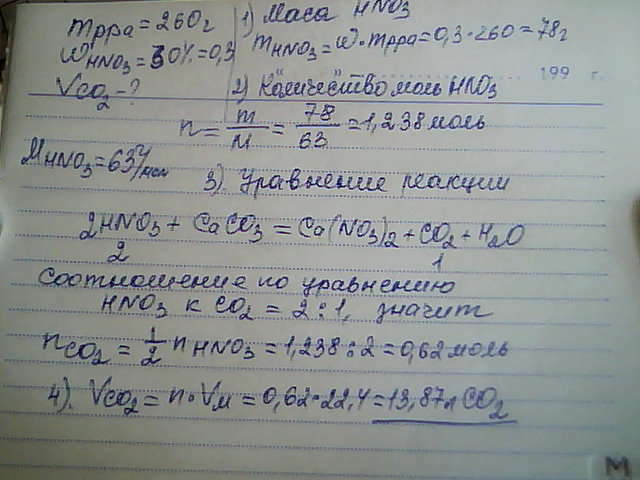 mрра = 260г
1) Маса HNO3
WHNO3 = 30% = 0,3
mHNO3 = W·mрра = 0,3·260 = 78г
199 г.
VCO2 - ?
2) Количество моль HNO3
n = m/M = 78/63 = 1,238 моль
MHNO3 = 63 г/моль
3) Уравнение реакции
2HNO3 + CaCO3 = Ca(NO3)2 + CO2 + H2O
2 1
Соотношение по уравнению
HNO3 к CO2 = 2:1, значит
nCO2 = 1/2 nHNO3 = 1,238:2 = 0,62 моль
4). VCO2 = n·Vм = 0,62·22,4 = 13,87л CO2
М